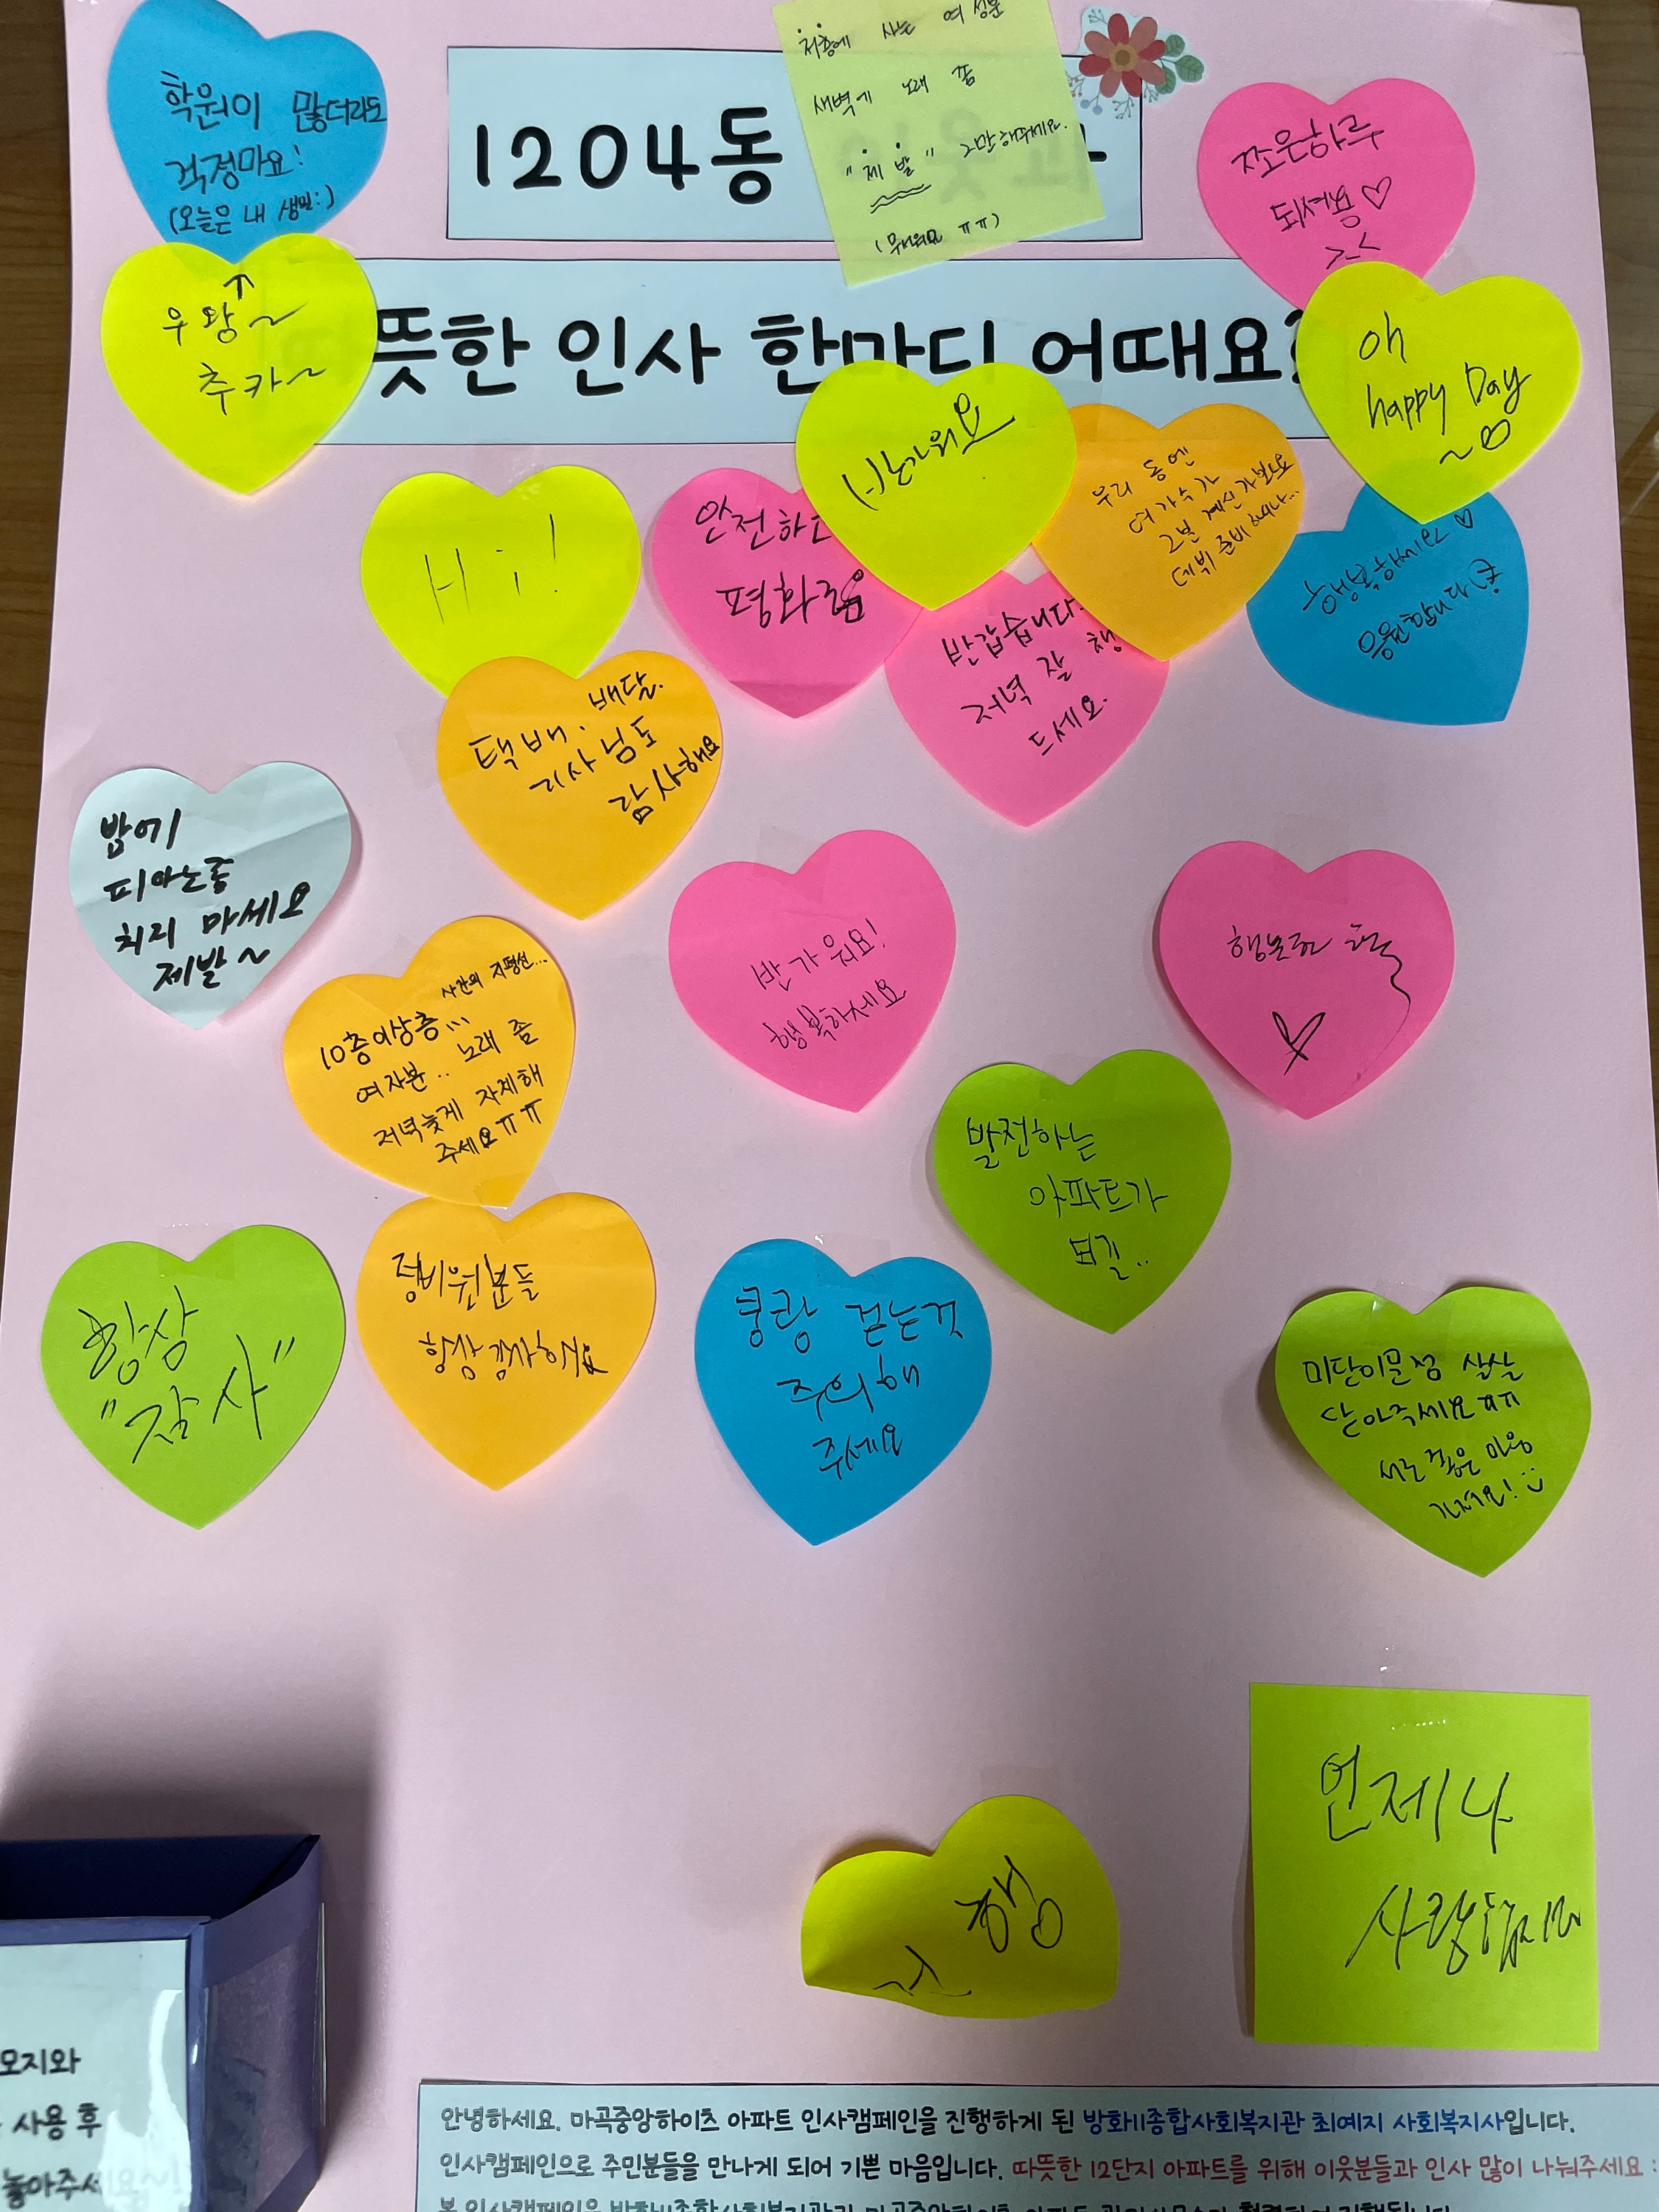 학원이 많더라도
걱정마요!
(오늘은 내 생일:)
우왕~
추카~
1204동
저층에 사는 여성분
새벽에 노래 좀
"제발" 그만해주세요.
(무서워요 ㅠㅠ)
쪼은하루
되세용♡
>.<
뜻한 인사 한마디 어때요?
oh
happy Day
~
Hi!
안전하고
평화로움
반가워요
우리 동엔
여가수가
그분 계신가보네요
데뷔 준비하시나...
행복하세요♡
응원합니다
반갑습니다
저녁 잘 챙
드세요.
택배. 배달.
기사님도
감사해요
밤에
피아노좀
치지 마세요
제발~
사건의 지평선...
10층이상층...
여자분.. 노래 좀
저녁늦게 자제해
주세요ㅠㅠ
반가워요!
행복하세요
행복한
발전하는
아파트가
되길..
항상
"감사"
경비원분들
항상 감사해요
쿵쾅 걷는것
주의해
주세요
미닫이문점 살살
닫아주세요ㅠㅠ
서로 좋은 마음
가져요! :)
행
언제나
사랑합니다
모지와
사용 후
놓아주세요
안녕하세요. 마곡중앙하이츠 아파트 인사캠페인을 진행하게 된 방화11종합사회복지관 최예지 사회복지사입니다.
인사캠페인으로 주민분들을 만나게 되어 기쁜 마음입니다. 따뜻한 12단지 아파트를 위해 이웃분들과 인사 많이 나눠주세요 :